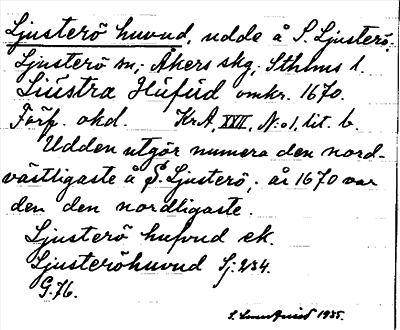 Ljusterö huvud, udde å S. Ljusterö,
Ljusterö sn, Åkers skg, Sthlms l.
Liústra Húfúd omkr. 1670.
Förf. okd. KrA, XXII, N:o 1, lit. b.
Udden utgör numera den nord-
västligaste å S. Ljusterö, år 1670 var
den den nordligaste.
Ljusterö hufvud ek.
Ljusteröhuvud Sj. 234.
G. 76.
1935.